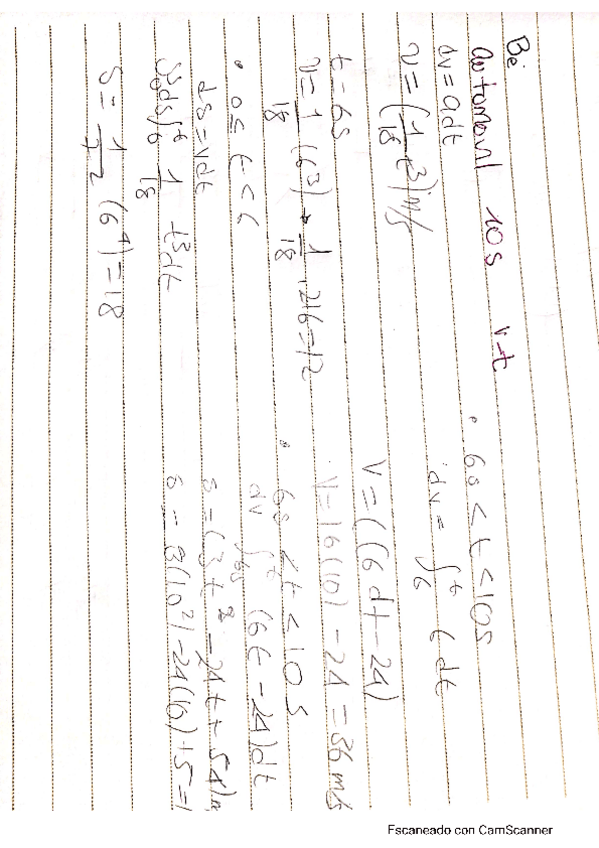 Be
automovil 10s v-t
dv = adt
v = (1/18 t3) m/s
t = 6s
v = 1/18 (6³) → 1/18 · 216 = 12
• 0 ≤ t < 6
ds = vdt
1/18 t³dt
S = (6⁴) = 18
• 6s < t < 10s
dv = ∫ᵗ₆ 6 dt
V = ((6 dt - 24)
V = 6(10) - 24 = 36 m/s
• 6s < t < 10 s
dv ∫ (6t - 24)dt
s = (3t² - 24t + 54)m
s = 3(10²) - 24(10) + 5 = 1
Escaneado con CamScanner